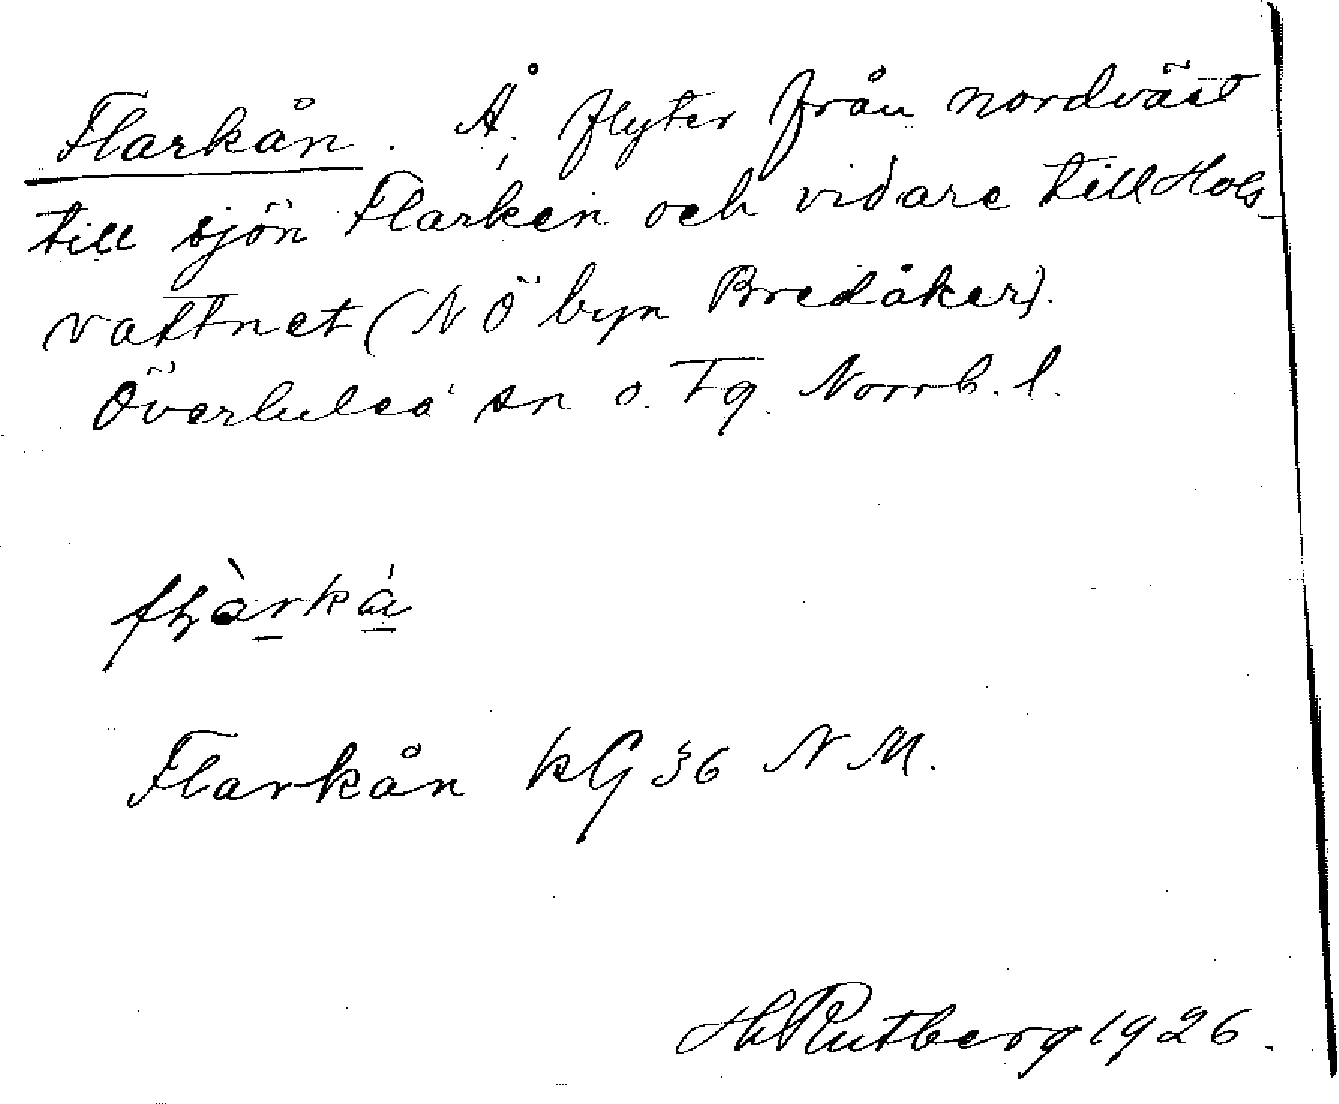 Flarkån. Å, flyter från nordväst
till sjön Flarken och vidare till Hols-
vattnet (N Ö byn Bredåker).
Överluleå sn o. Tg. Norrb. l.
Flarkån KG 36 N M.
H Rutberg 1926.